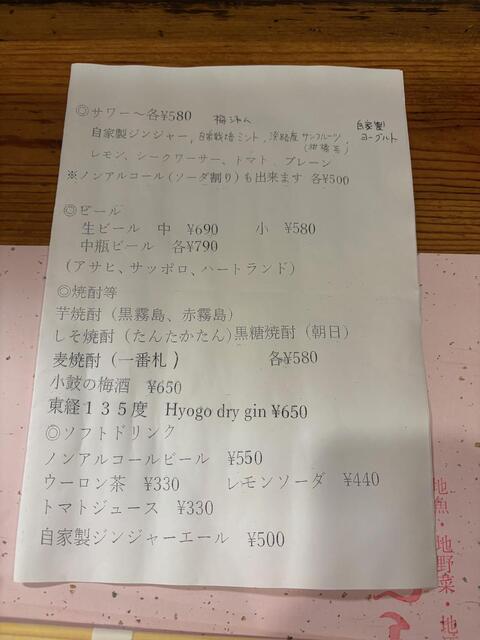 ◎サワー～各¥580　梅じゃん
自家製ジンジャー, 自家栽培ミント, 淡路産サンフルーツ, 自家製ヨーグルト
(柑橘系)
レモン、シークワーサー、トマト、プレーン
※ノンアルコール（ソーダ割り）も出来ます 各¥500
◎ビール
生ビール　中　¥690　　小　¥580
中瓶ビール　各¥790
（アサヒ、サッポロ、ハートランド）
◎焼酎等
芋焼酎（黒霧島、赤霧島）
しそ焼酎（たんたかたん）黒糖焼酎（朝日）
麦焼酎（一番札）　各¥580
小鼓の梅酒　¥650
東経１３５度　Hyogo dry gin ¥650
◎ソフトドリンク
ノンアルコールビール　¥550
ウーロン茶　¥330　　レモンソーダ　¥440
トマトジュース　¥330
自家製ジンジャーエール　¥500
地魚・地野菜・地